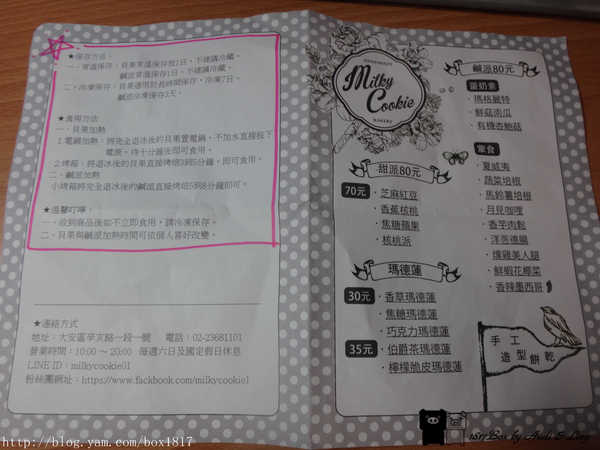 ★保存方法：
一、常溫保存：貝果常溫保存放1日、不建議冷藏。
鹹派常溫保存1日、不建議冷藏。
二、冷凍保存：貝果適用於長時間保存，冷凍7日。
鹹派冷凍保存3天。
★食用方法
一、貝果加熱
1.電鍋加熱：將完全退冰後的貝果置電鍋，不加水直接按下
電源，待十分鐘後即可食用。
2.烤箱：將退冰後的貝果直接烤焙3到5分鐘，即可食用。
二、鹹派加熱
小烤箱將完全退冰後的鹹派直接烤焙5到8分鐘即可。
★溫馨叮嚀：
一、收到商品後如不立即食用，請冷凍保存。
二、貝果與鹹派加熱時間可依個人喜好改變。
★連絡方式
地址：大安區辛亥路一段一號 電話：02-23681101
營業時間：10:00 ～ 20:00 每週六日及國定假日休息
LINE ID：milkycookie01
粉絲團網址：https://www.fackbook.com/milkycookie1
Milky
Cookie
BAKERY
甜派80元
70元
・芝麻紅豆
・香蕉核桃
・焦糖蘋果
・核桃派
瑪德蓮
30元
・香草瑪德蓮
・焦糖瑪德蓮
・巧克力瑪德蓮
35元
・伯爵茶瑪德蓮
・檸檬脆皮瑪德蓮
鹹派80元
蛋奶素
・瑪格麗特
・鮮菇南瓜
・有機杏鮑菇
葷食
・夏威夷
・蔬菜培根
・馬鈴薯培根
・月見咖哩
・香芋肉鬆
・洋蔥德腸
・燻雞美人腿
・鮮蝦花椰菜
・香辣墨西哥
手工
造型餅乾
http://blog.yam.com/box4817